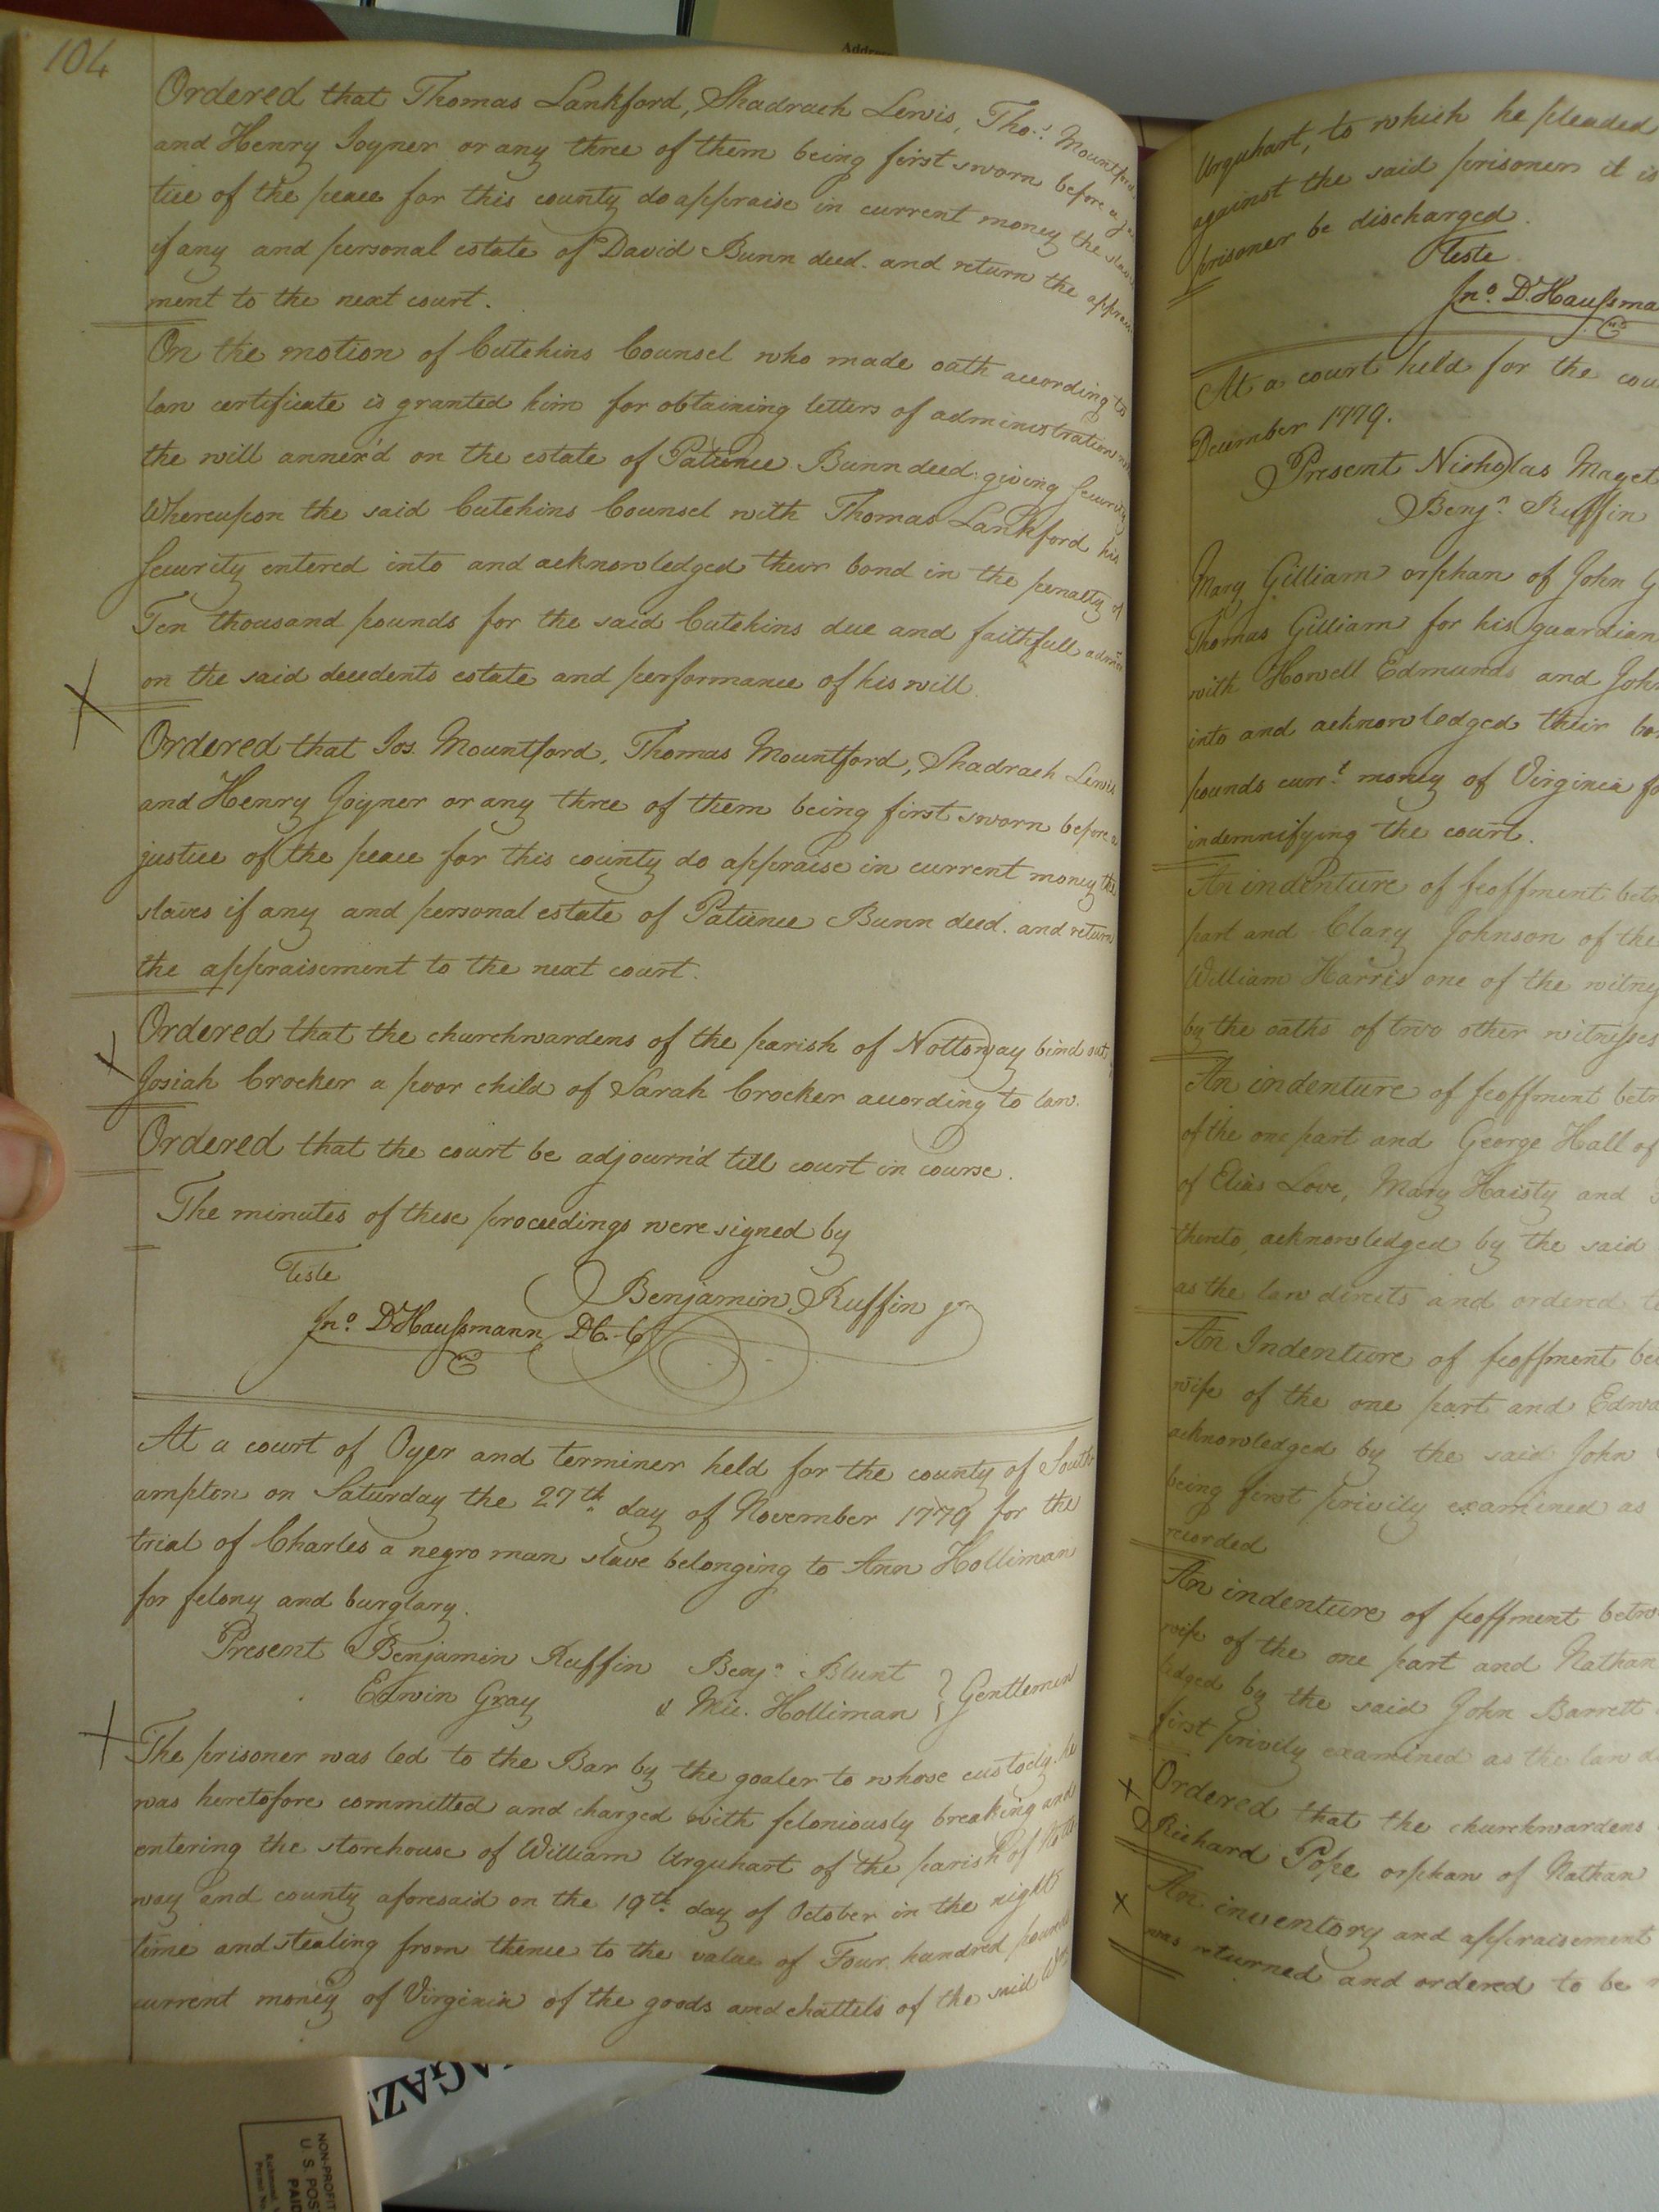 104
Ordered that Thomas Lankford, Shadrach Lewis, Tho.s Mountford
and Henry Joyner or any three of them being first sworn before a
tice of the peace for this county do appraise in current money the slaves
if any and personal estate of David Bunn deed. and return the apprais
ment to the next court.
On the motion of Cutchins Counsel who made oath acording to
law certificate is granted him for obtaining letters of administration
the will annex'd on the estate of Patience Bunn deed. giving security
Whereupon the said Cutchins Counsel with Thomas Lankford his
security entered into and acknowledged their bond in the penalty of
Ten thousand pounds for the said Cutchins due and faithfull admn
on the said decedents estate and performance of his will.
X
Ordered that Jos. Mountford, Thomas Mountford, Shadrach Lewis
and Henry Joyner or any three of them being first sworn before a
justice of the peace for this county do appraise in current money the
slaves if any and personal estate of Patience Bunn deed. and return
the appraisement to the next court.
X
Ordered that the churchwardens of the parish of Nottoway bind out
Josiah Crocker a poor child of Sarah Crocker acording to law.
Ordered that the court be adjourn'd till court in course.
The minutes of these proceedings were signed by
Teste
Benjamin Ruffin jr
Jno. D Haussmann D C. C
At a court of Oyer and terminer held for the county of South
ampton on Saturday the 27th day of November 1779 for the
trial of Charles a negro man slave belonging to Ann Holliman
for felony and burglary.
Present Benjamin Ruffin Benja Blunt
Edwin Gray & Mic. Holliman } Gentlemen
X
The prisoner was led to the Bar by the goaler to whose custody he
was heretofore committed and charged with feloniously breaking and
entering the storehouse of William Urquhart of the parish of Notto
way and county aforesaid on the 19th day of October in the night
time and stealing from thence to the value of Four hundred pounds
current money of Virginia of the goods and chattels of the said Wm
Urquhart, to which he pleaded
against the said prisoner it is
prisoner be discharged.
Teste
Jno. D. Haussma
At a court held for the cou
December 1779.
Present Nicholas Maget
Benjn Ruffin
Mary Gilliam orphan of John G
Thomas Gilliam for his guardian
with Howell Edmunds and John
into and acknowledged their bo
pounds currt money of Virginia fo
indemnifying the court.
An indenture of feoffment betw
part and Clary Johnson of the
William Harris one of the witne
by the oaths of two other witnesses
An indenture of feoffment betw
of the one part and George Hall of
of Elias Love, Mary Haisty and
thereto, acknowledged by the said
as the law directs and ordered to
An Indenture of feoffment be
wife of the one part and Edwa
acknowledged by the said John
being first privily examined as
recorded
An indenture of feoffment betw
wife of the one part and Nathan
ledged by the said John Barrett
first privily examined as the law d
X
Ordered that the churchwardens
Richard Pope orphan of Nathan
X
An inventory and appraisement
was returned and ordered to be
Address
AGAZ
NON-PROFIT
U. S. POS
PAID
Richmond,
Permit No.